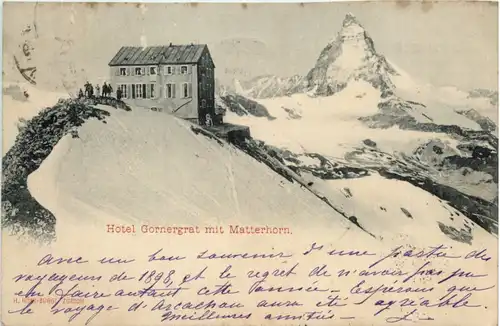 Hotel Gornergrat mit Matterhorn.
Avec un bon souvenir d'une partie des
voyageurs de 1898, et le regret de n'avoir pas pu
en faire autant cette année. Espérons que
le voyage d'Arcachon aura été agréable.
Meilleures amitiés